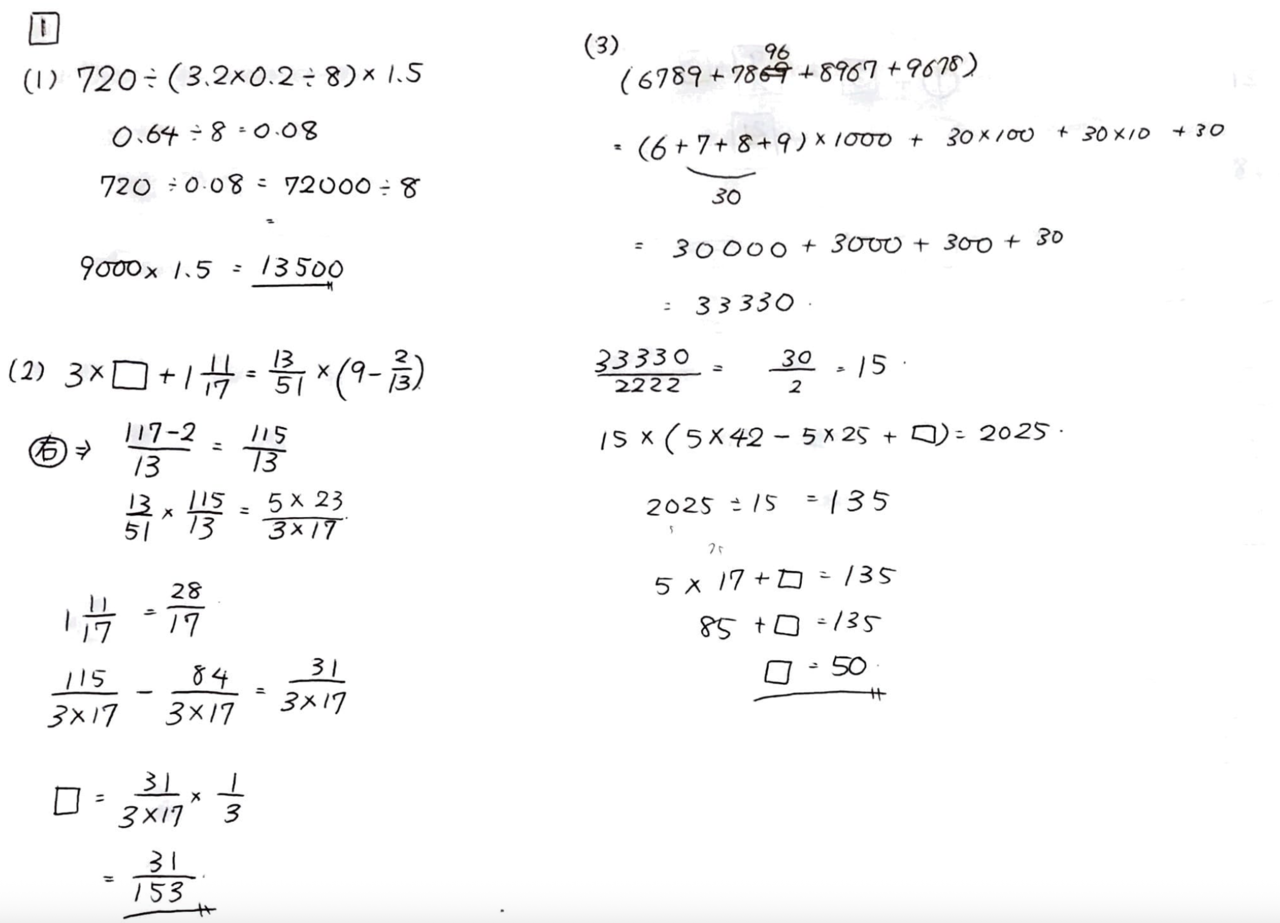 1
(1) 720÷(3.2×0.2÷8)×1.5
0.64÷8=0.08
720÷0.08=72000÷8
=
9000×1.5=13500
(2) 3×□+1 11/17=13/51×(9-2/13)
㊨⇒ (117-2)/13=115/13
13/51×115/13=(5×23)/(3×17)
1 11/17=28/17
115/(3×17)-84/(3×17)=31/(3×17)
□=31/(3×17)×1/3
=31/153
(3)
96
(6789+7869+8967+9678)
=(6+7+8+9)×1000+30×100+30×10+30
30
=30000+3000+300+30
=33330.
33330/2222=30/2=15.
15×(5×42-5×25+□)=2025.
2025÷15=135
5×17+□=135
85+□=135
□=50